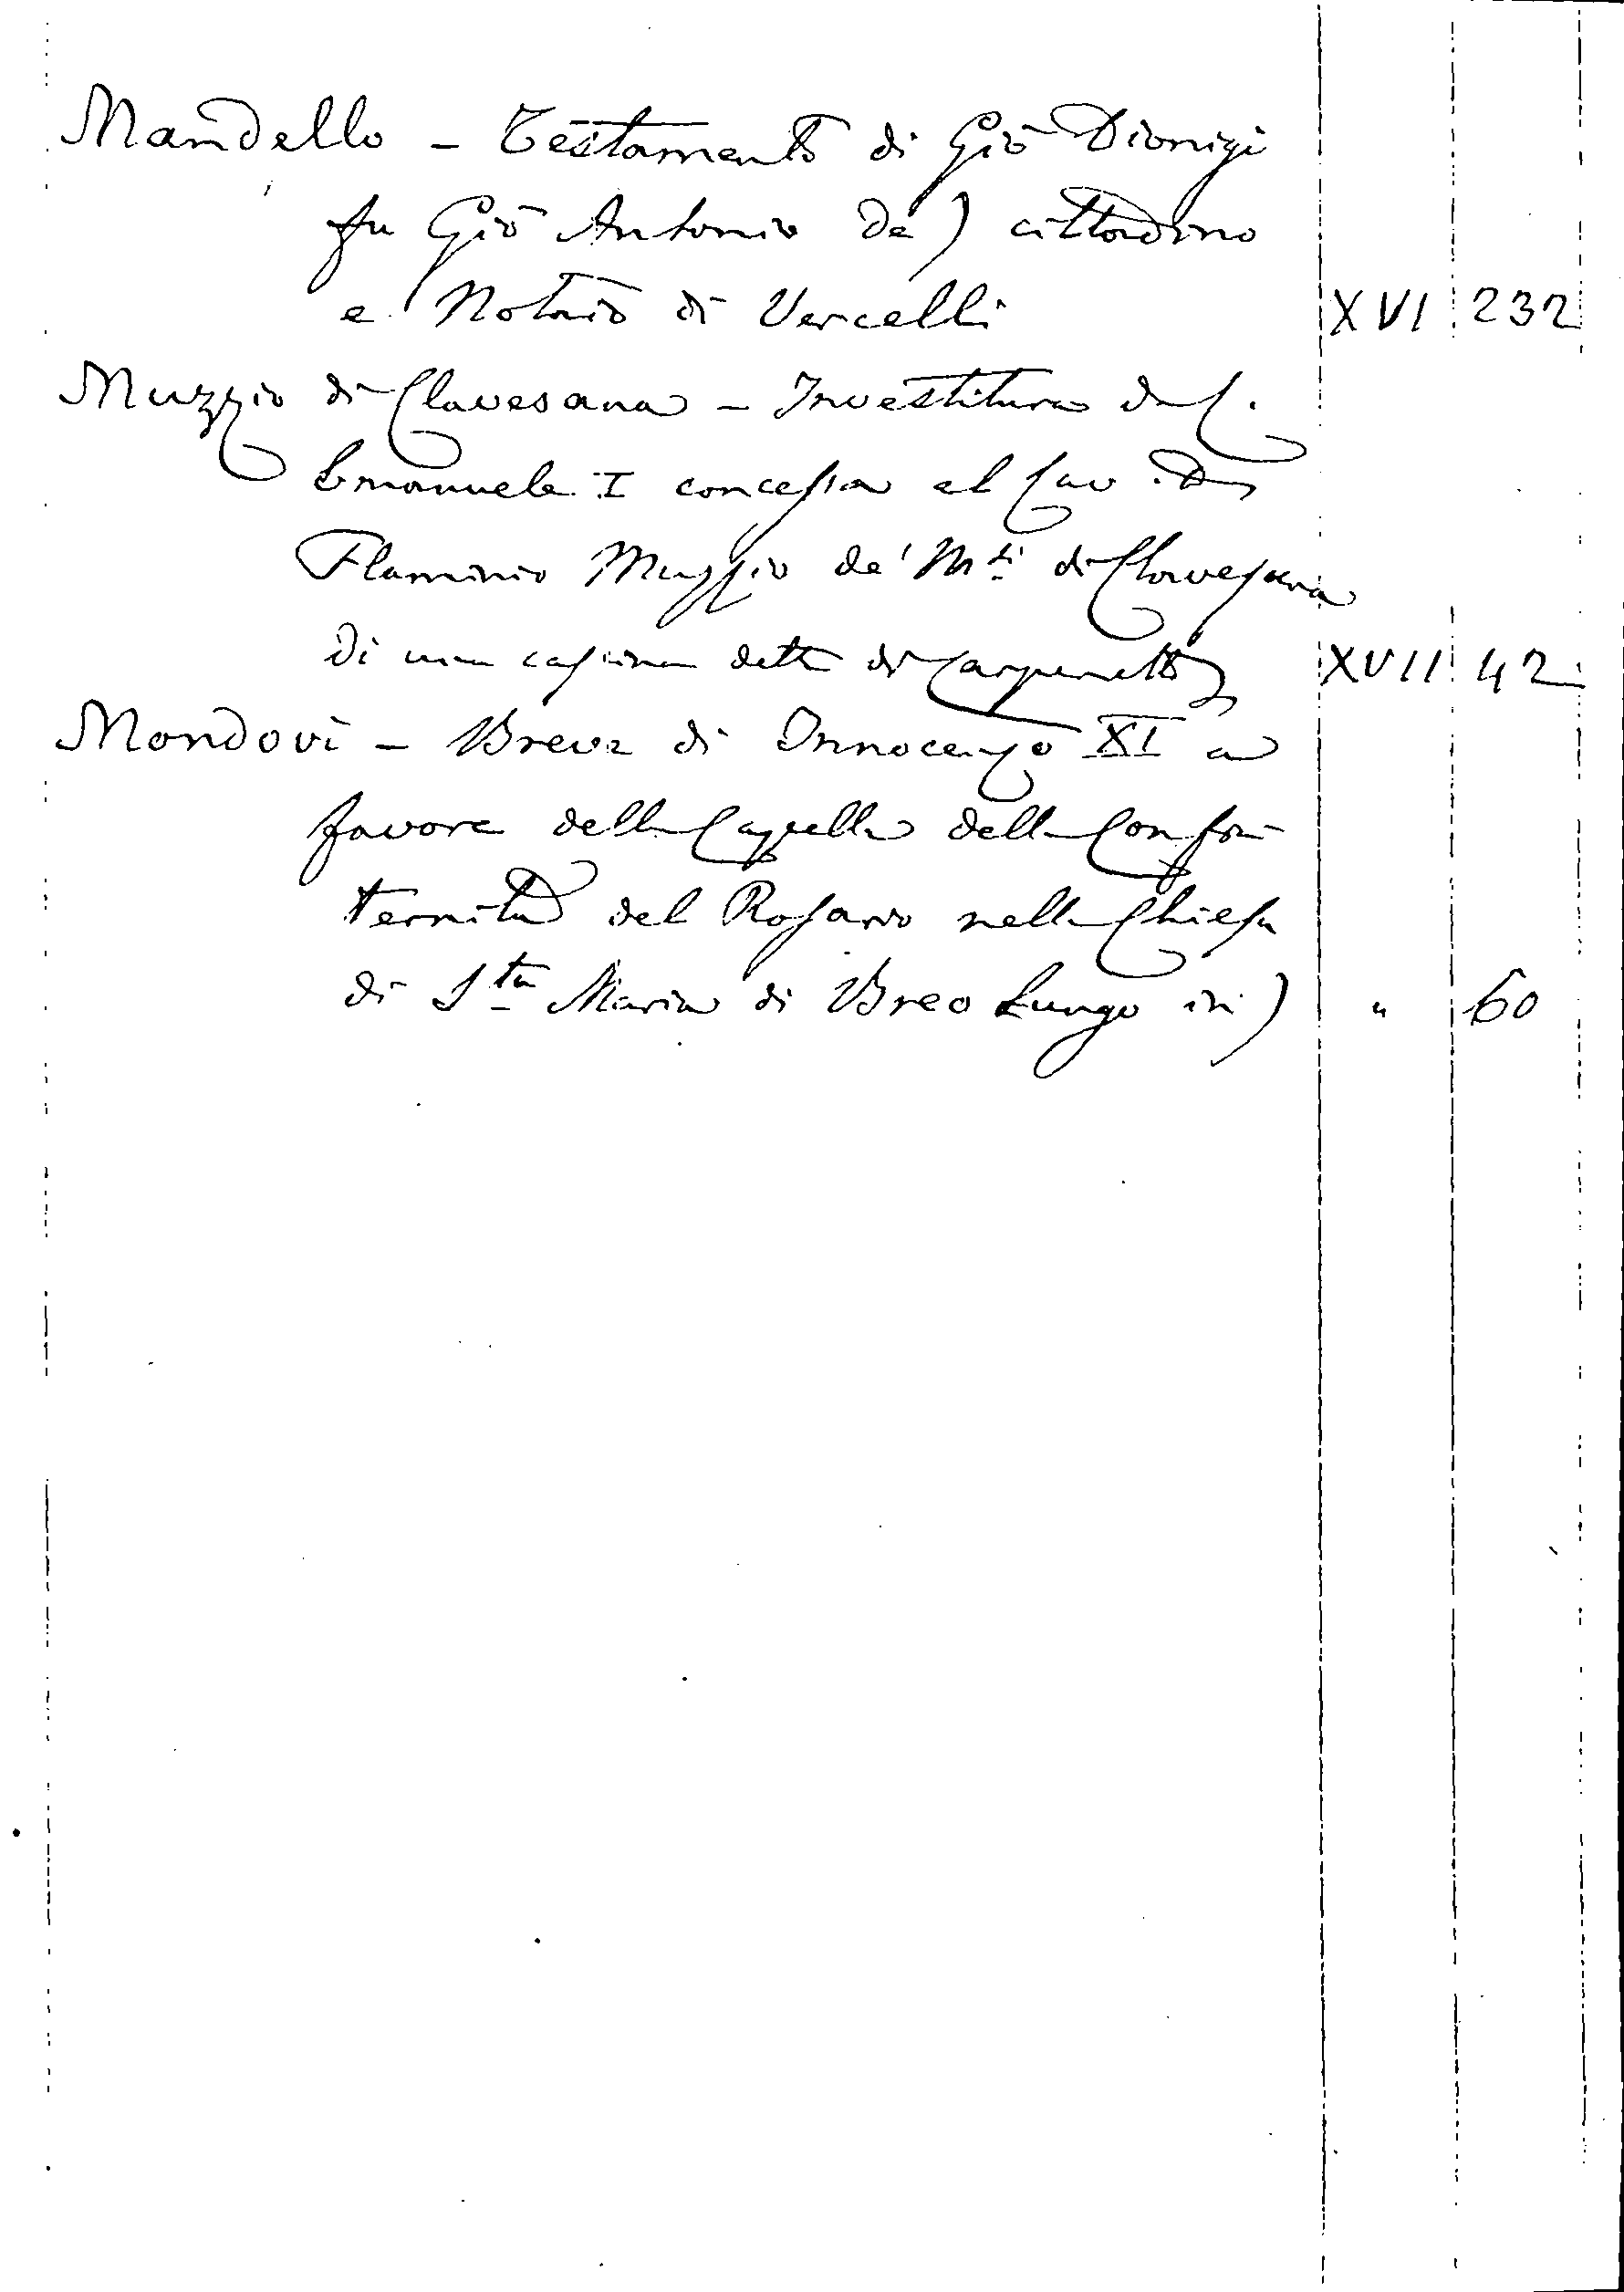 Mandello - Testamento di Gio Dionigi
fu Gio Antonio de) cittadino
e Notaio di Vercelli XVI 232
Muzzio di Clavesana - Investitura di C.
Emanuele I concessa al Cav. Dn
Flaminio Muzzio de' M.si di Clavesana
di una cassina detta di Carpenetto XVII 42
Mondovì - Breve di Innocenzo XI a
favore della Cappella della Confra
ternita del Rosario nella Chiesa
di Sta Maria di Breo Lungo in) " 60